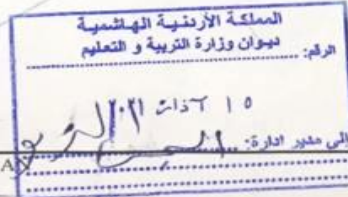 المملكة الأردنية الهاشمية
ديوان وزارة التربية و التعليم
الرقم: ........................
١٥ آذار ٢٠٢١
إلى مدير ادارة: ........................